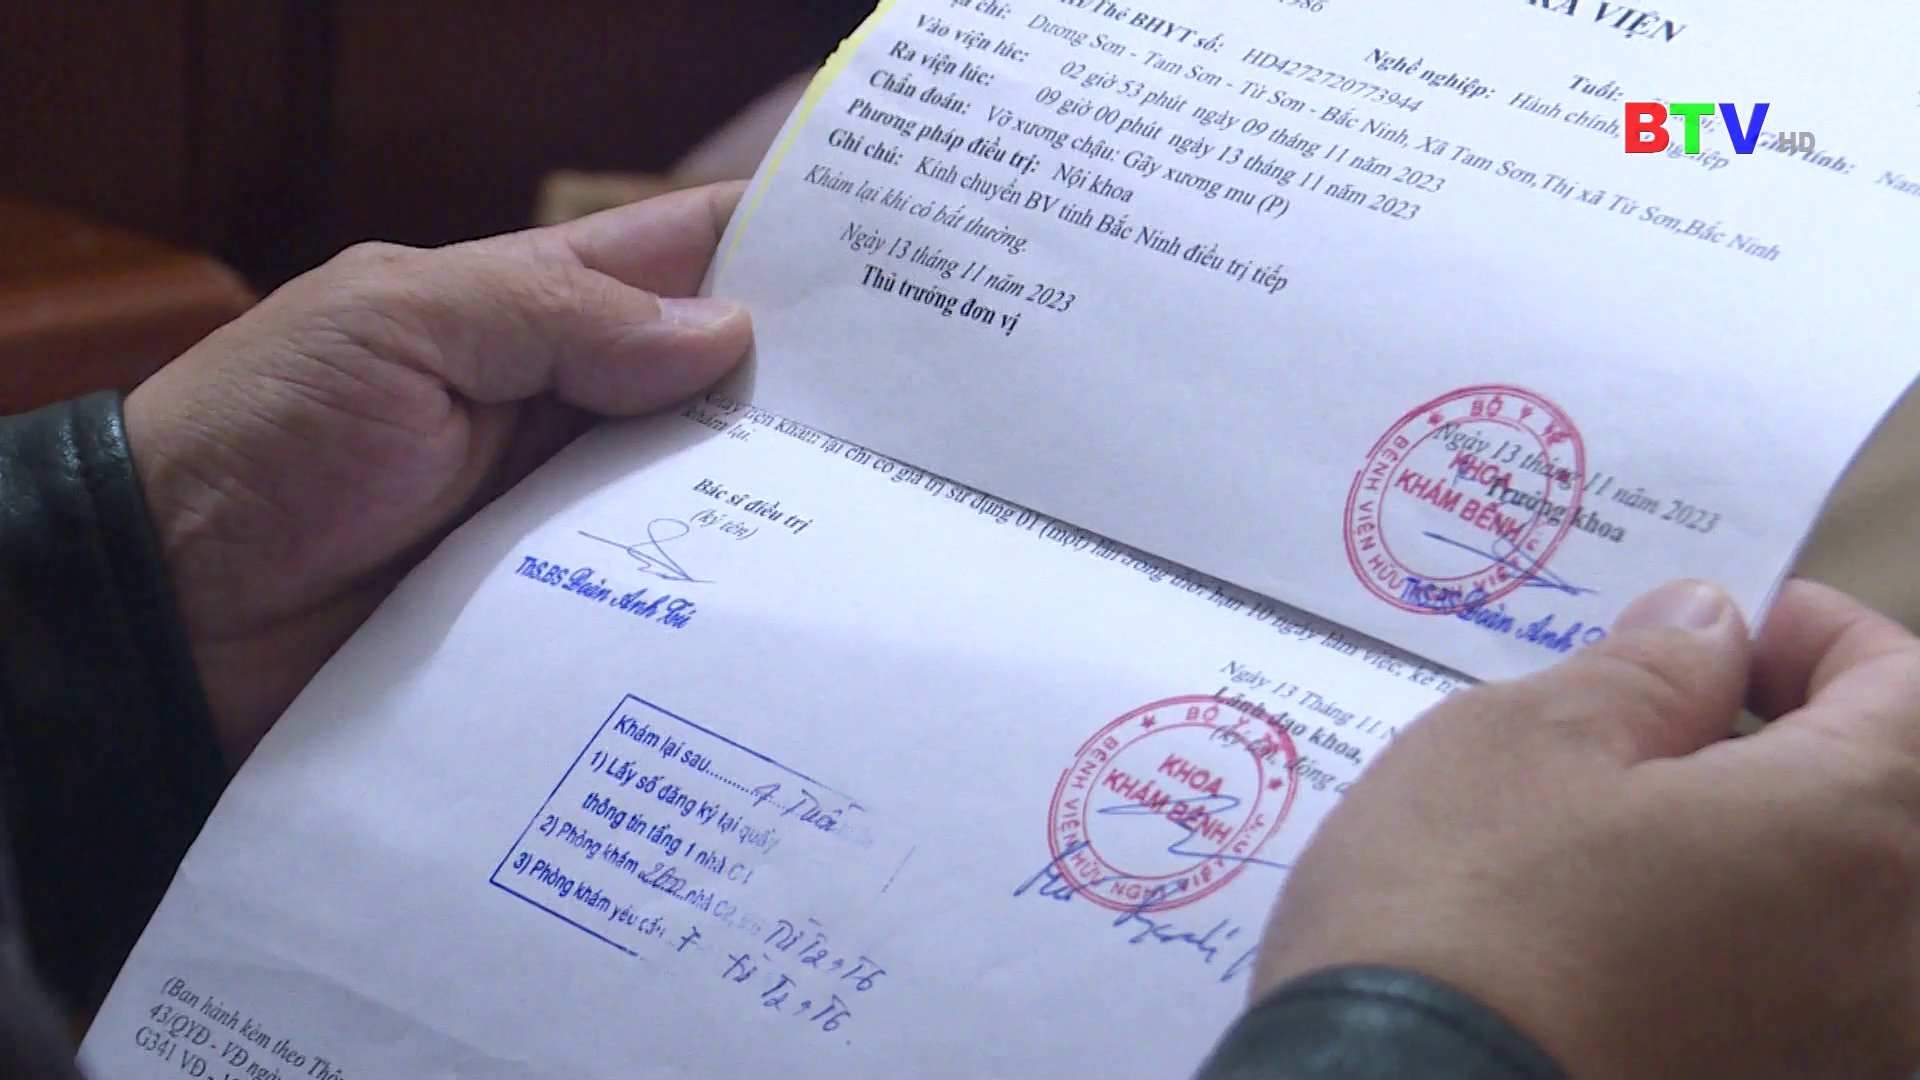 RA VIỆN
1986
Tuổi:
Giới tính: Nam
Thẻ BHYT số: HD4272720773944
Nghề nghiệp: Hành chính,
chỉ: Dương Sơn - Tam Sơn - Từ Sơn - Bắc Ninh, Xã Tam Sơn,Thị xã Từ Sơn,Bắc Ninh
Vào viện lúc: 02 giờ 53 phút ngày 09 tháng 11 năm 2023
Ra viện lúc: 09 giờ 00 phút ngày 13 tháng 11 năm 2023
Chẩn đoán: Vỡ xương chậu: Gãy xương mu (P)
Phương pháp điều trị: Nội khoa
Ghi chú: Kính chuyển BV tỉnh Bắc Ninh điều trị tiếp
Khám lại khi có bất thường.
Ngày 13 tháng 11 năm 2023
Thủ trưởng đơn vị
Ngày 13 tháng 11 năm 2023
Trưởng khoa
BỘ Y TẾ
KHOA
KHÁM BỆNH
BỆNH VIỆN HỮU
ThS.BS Đoàn Anh
hẹn khám lại chỉ có giá trị sử dụng 01 (một) lần trong thời hạn 10 ngày làm việc, kể
khám lại.
Bác sĩ điều trị
(ký tên)
ThS.BS Đoàn Anh Tú
Ngày 13 Tháng 11
Lãnh đạo khoa,
BỘ Y TẾ
KHOA
KHÁM BỆNH
BỆNH VIỆN HỮU NGHỊ VIỆT
Khám lại sau.......... 4 Tuần
1) Lấy số đăng ký tại quầy
thông tin tầng 1 nhà C1
2) Phòng khám nhà C2, Từ T2, T6
3) Phòng khám yêu cầu 7 Từ T2, T6.
(Ban hành kèm theo
43/QYĐ - VĐ ngày
G341 VĐ -
BTV HD